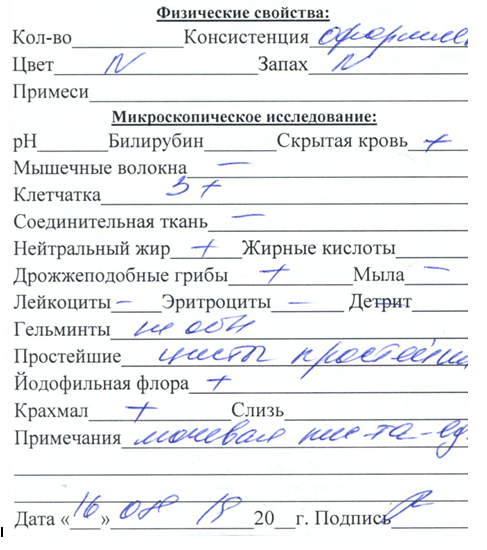 Физические свойства:
Кол-во____________Консистенция оформлен
Цвет N Запах N
Примеси
Микроскопическое исследование:
рН_______Билирубин________Скрытая кровь +
Мышечные волокна —
Клетчатка 3+
Соединительная ткань —
Нейтральный жир + Жирные кислоты
Дрожжеподобные грибы + Мыла —
Лейкоциты — Эритроциты — Детрит
Гельминты не обн
Простейшие цисты простейши
Йодофильная флора +
Крахмал + Слизь
Примечания ед.
Дата «16» 20__г. Подпись